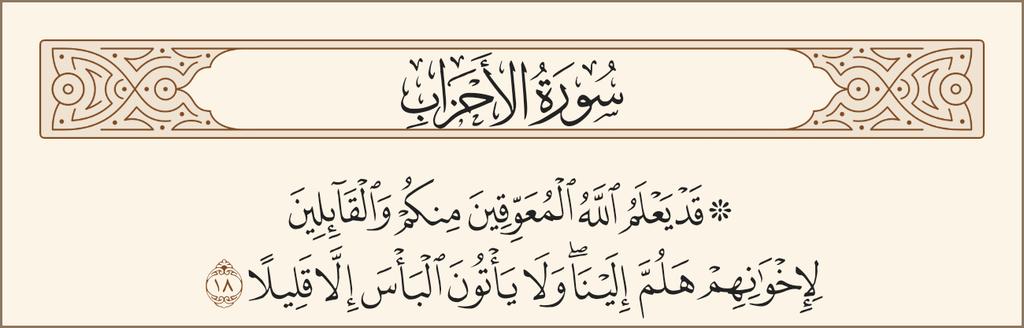 سُورَةُ الأَحْزَابِ
۞ قَدْ يَعْلَمُ ٱللَّهُ ٱلْمُعَوِّقِينَ مِنكُمْ وَٱلْقَآئِلِينَ
لِإِخْوَٰنِهِمْ هَلُمَّ إِلَيْنَا ۖ وَلَا يَأْتُونَ ٱلْبَأْسَ إِلَّا قَلِيلًا ١٨